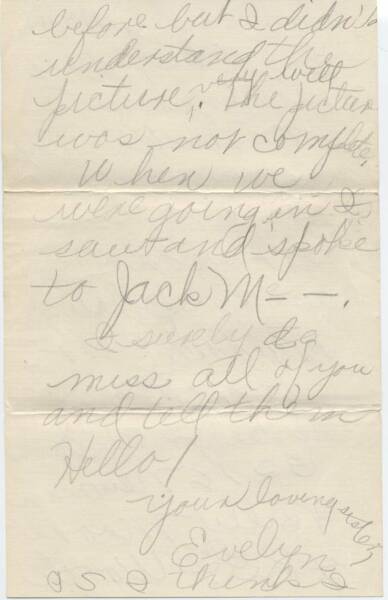 before but I didn't
understand the
picture, very well
. The picture
was not complete.
When we
were going in I
saw and spoke
to Jack Mc — —.
I surely do
miss all of you
and tell them
Hello!
Your loving sister,
Evelyn
P.S. I think I